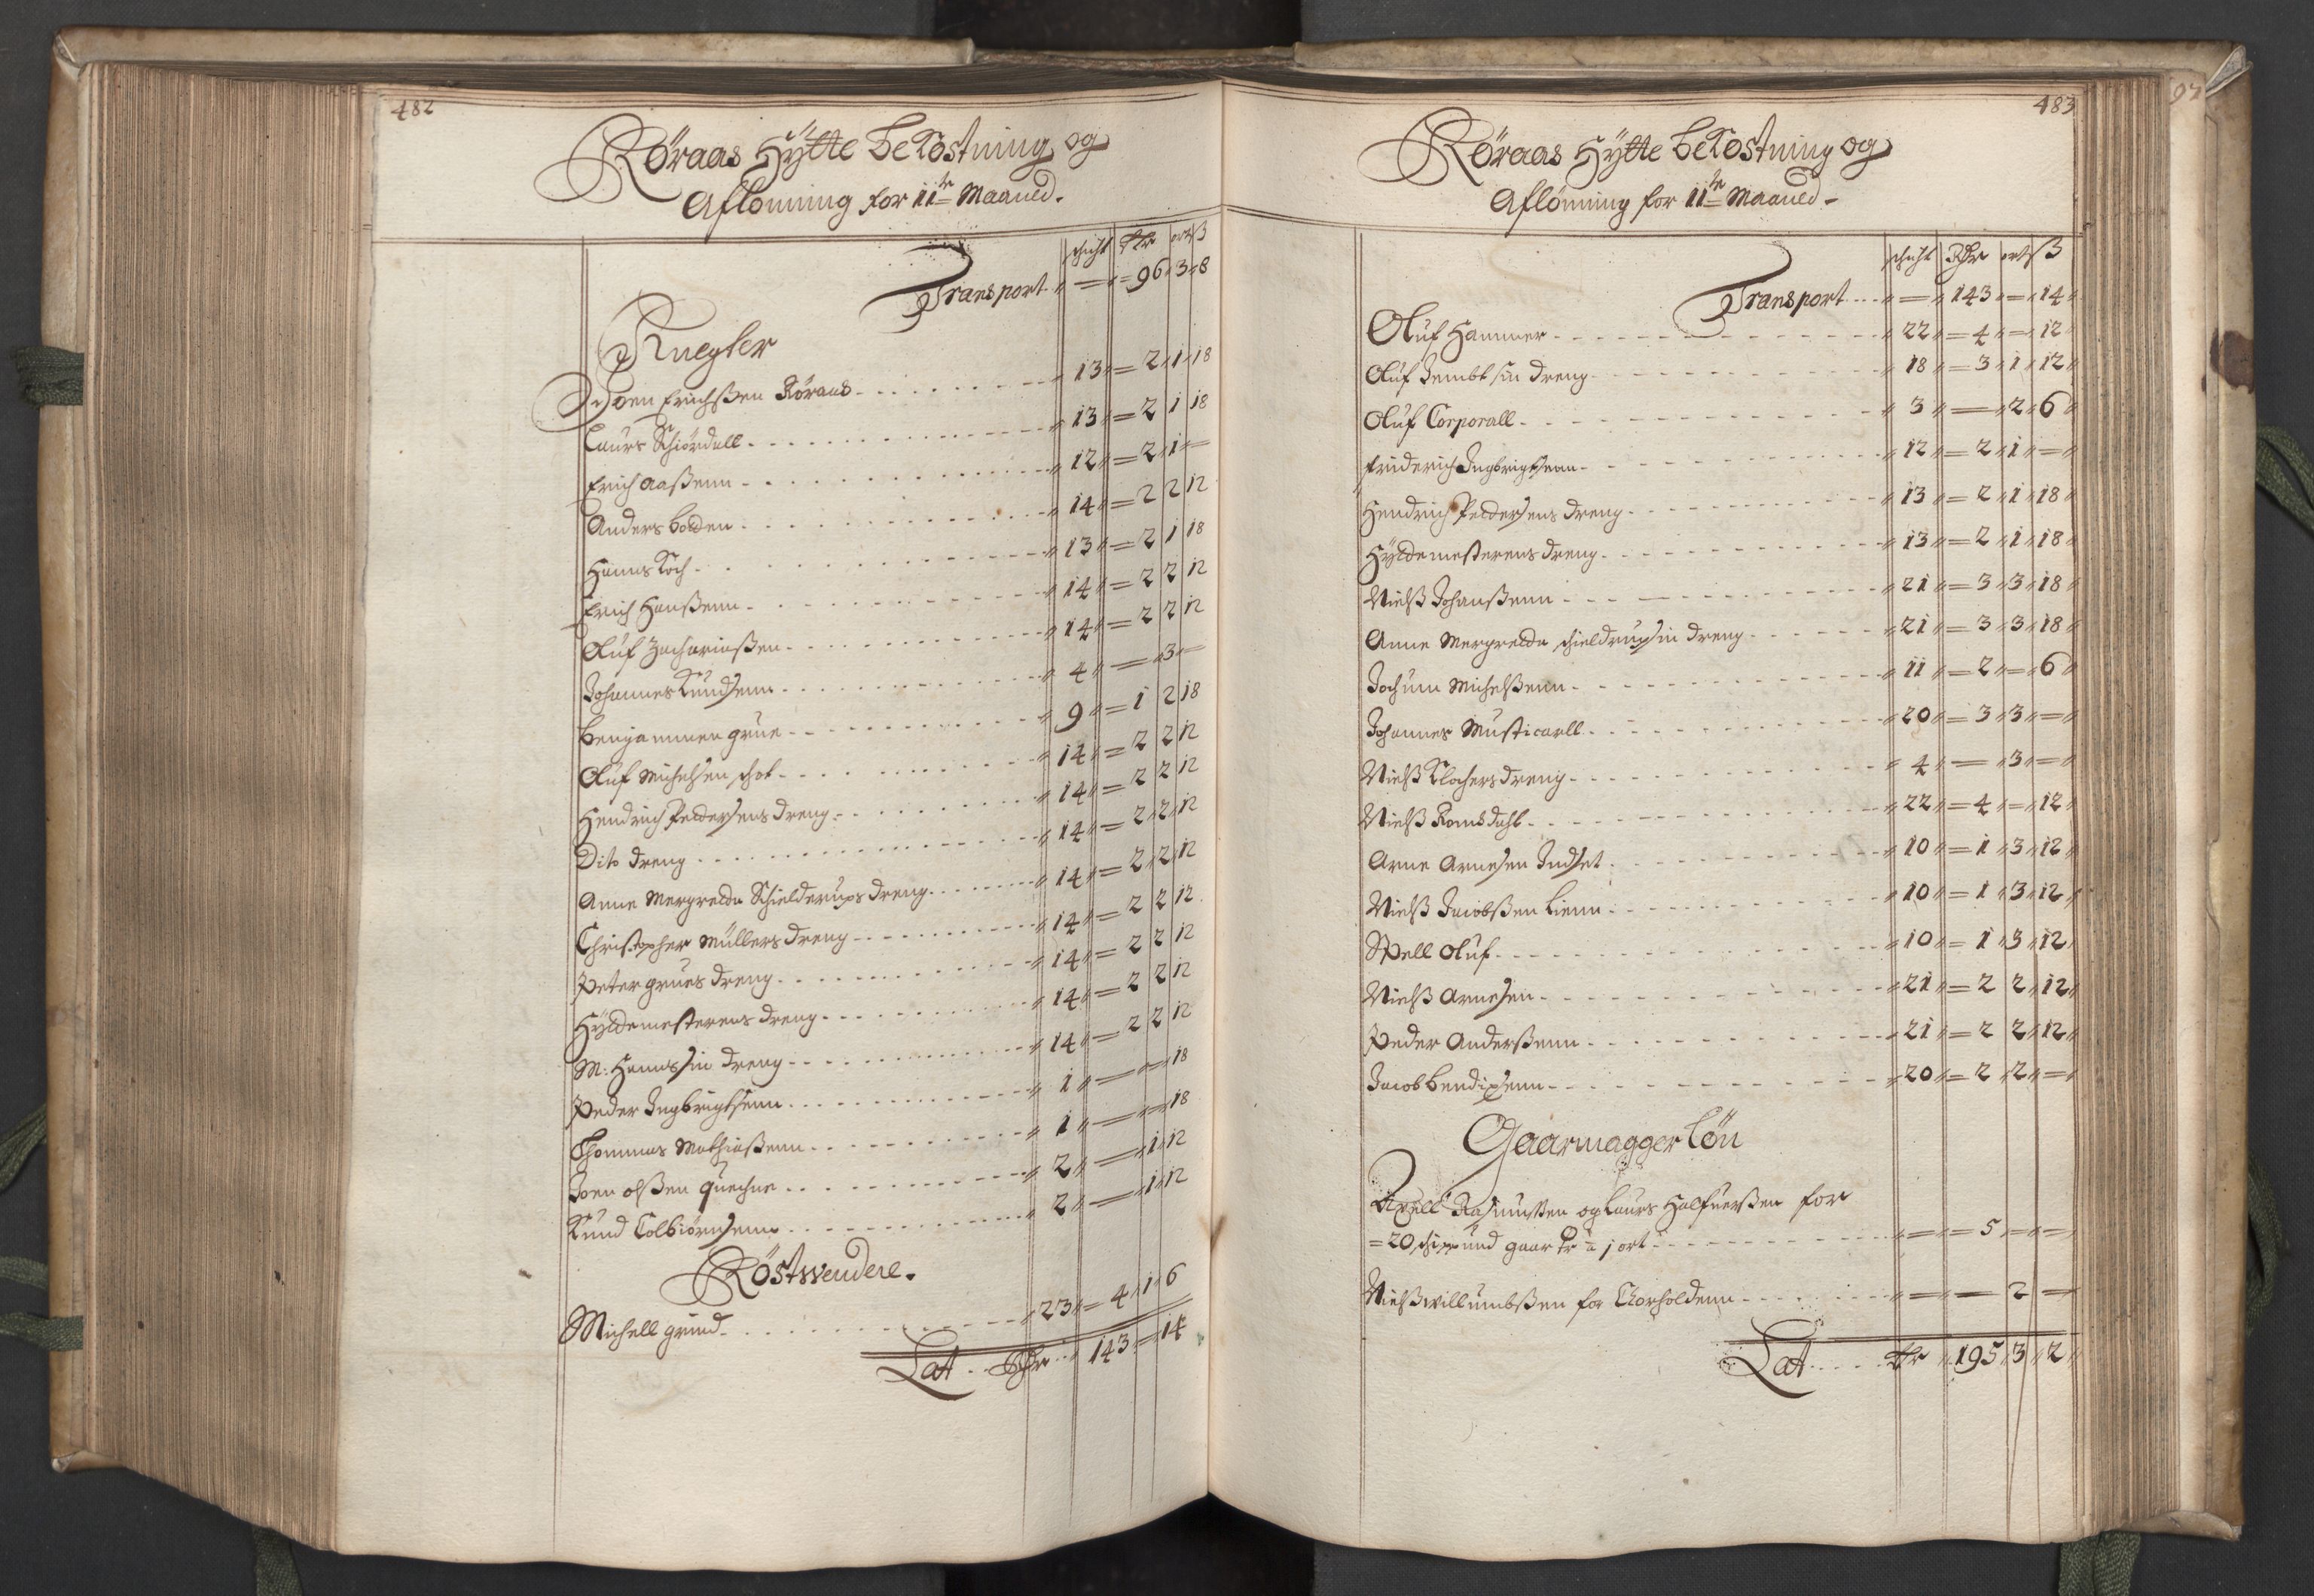 482
Röraas Hÿtte bekostning og
Aflönning for 11te Maaned.
schicht Rdr ort ß
Transport - " = 96 " 3 " 8
Knegter
Joen Erichßen Röraas - 13 " = 2 " 1 " 18
Laurs Schiördall - 13 " = 2 1 18
Erich Aaßenn - 12 " = 2 " 1 " =
Anders bolden - 14 " = 2 2 12
Hanns Koch - 13 " = 2 1 18
Erich Hanßenn - 14 " = 2 2 12
Oluf Zachariaßen - 14 " = 2 2 12
Johannes Knudsenn - 4 " = " 3 " =
Benjammen grue - 9 " = 1 2 18
Oluf Michelsen schot - 14 " = 2 2 12
Hendrich Peddersens dreng - 14 " = 2 2 12
Dito dreng - 14 " = 2 " 2 " 12
Anne Mergredta Schielderups dreng - 14 " = 2 " 2 " 12
Christopher Müllers dreng - 14 " = 2 2 12
Peter grues dreng - 14 " = 2 2 12
Hÿttemesterens dreng - 14 " = 2 2 12
M: Hanns sin dreng - 14 " = 2 2 12
Peder Ingbrigtsenn - 1 " = " = " 18
Thommas Mathiaßenn - 1 " = " = " 18
Joen olßen quechne - 2 " = " 1 " 12
Knud Tolbiörnsenn - 2 " = " 1 " 12
Röstwendere.
Michell grind - 23 " = 4 " 1 " 6
Lat - Rdr " 143 " = " 14
483
Röraas Hÿtte bekostning og
Aflönning for 11te Maaned -
schicht Rdr ort ß
Transport - " = " 143 " = " 14 "
Oluf Hammer - 22 " = 4 " = " 12
Oluf Jembt sin dreng - 18 " = 3 " 1 " 12 "
Oluf Corporall - 3 " = " 2 " 6 "
Friderich Ingbrigtsenn - 12 " = 2 " 1 " = "
Hendrich Peddersens dreng - 13 " = 2 " 1 " 18 "
Hÿttemesterens dreng - 13 " = 2 " 1 " 18 "
Nielß Johanßenn - 21 " = 3 " 3 " 18 "
Anne Mergredta schieldrup sin dreng - 21 " = 3 " 3 " 18 "
Jochum Michelßenn - 11 " = 2 " = " 6 "
Johannes Musticarll - 20 " = 3 " 3 " = "
Nielß Klochers dreng - 4 " = " 3 " = "
Nielß Romsdahl - 22 " = 4 " = " 12 "
Arne Arnesen Indset - 10 " = 1 " 3 " 12 "
Nielß Jacobßen Lienn - 10 " = 1 " 3 " 12 "
Spell Oluf - 10 " = 1 " 3 " 12 "
Nielß Arnesen - 21 " = 2 2 " 12 "
Peder Anderßenn - 21 " = 2 2 " 12 "
Jacob bendixsenn - 20 " = 2 " 2 " = "
Gaarmagger Lön
Axell Rasmußen og Laurs Halfuerßen for
= 20 schippund gaar kr á 1 ort - " = " = 5 " = " = "
Nielß willumbßen for Thorholdenn - " = " = 2 =
Lat - Rdr " 195 " 3 " 2 "